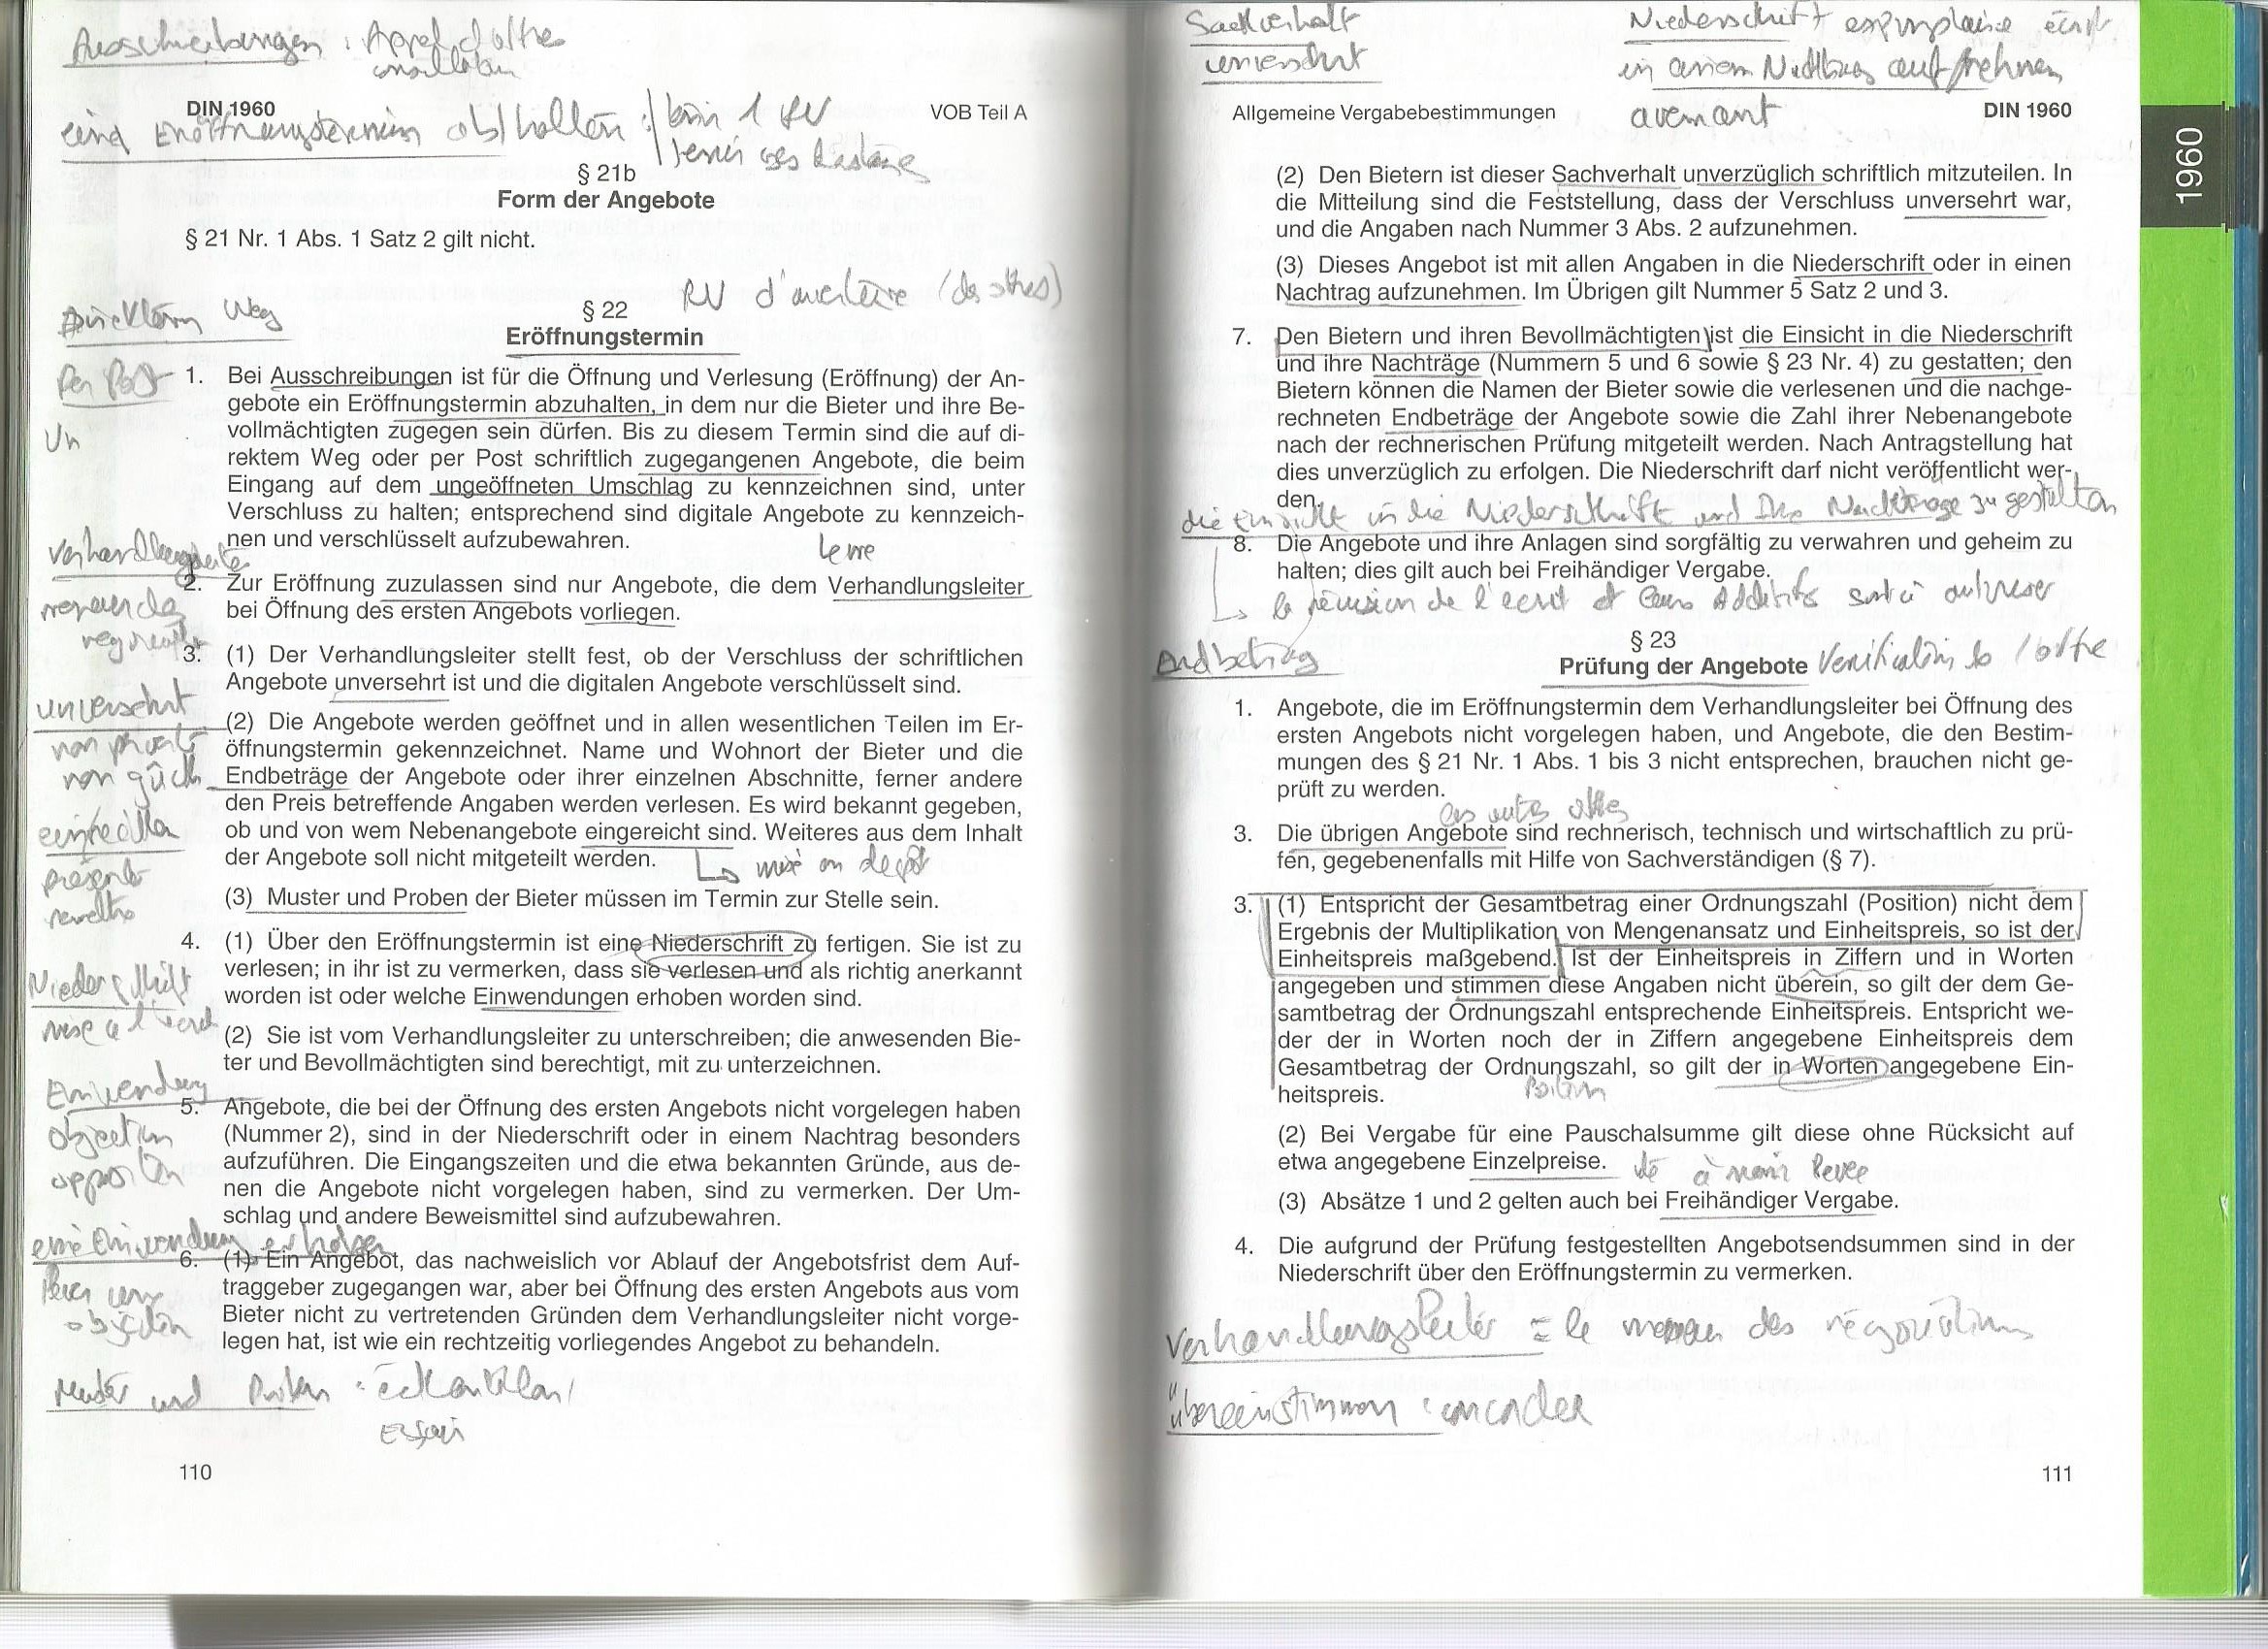 Ausschreibungen : Appel d'offres
DIN 1960
VOB Teil A
eine Eröffnungstermin abhalten :
§ 21b
Form der Angebote
§ 21 Nr. 1 Abs. 1 Satz 2 gilt nicht.
RV d'ouverture (des offres)
Weg
§ 22
Eröffnungstermin
Per Post
1. Bei Ausschreibungen ist für die Öffnung und Verlesung (Eröffnung) der An-
gebote ein Eröffnungstermin abzuhalten, in dem nur die Bieter und ihre Be-
vollmächtigten zugegen sein dürfen. Bis zu diesem Termin sind die auf di-
rektem Weg oder per Post schriftlich zugegangenen Angebote, die beim
Eingang auf dem ungeöffneten Umschlag zu kennzeichnen sind, unter
Verschluss zu halten; entsprechend sind digitale Angebote zu kennzeich-
nen und verschlüsselt aufzubewahren.
2. Zur Eröffnung zuzulassen sind nur Angebote, die dem Verhandlungsleiter
bei Öffnung des ersten Angebots vorliegen.
3. (1) Der Verhandlungsleiter stellt fest, ob der Verschluss der schriftlichen
Angebote unversehrt ist und die digitalen Angebote verschlüsselt sind.
unversehrt
(2) Die Angebote werden geöffnet und in allen wesentlichen Teilen im Er-
öffnungstermin gekennzeichnet. Name und Wohnort der Bieter und die
Endbeträge der Angebote oder ihrer einzelnen Abschnitte, ferner andere
den Preis betreffende Angaben werden verlesen. Es wird bekannt gegeben,
ob und von wem Nebenangebote eingereicht sind. Weiteres aus dem Inhalt
der Angebote soll nicht mitgeteilt werden.
(3) Muster und Proben der Bieter müssen im Termin zur Stelle sein.
4. (1) Über den Eröffnungstermin ist eine Niederschrift zu fertigen. Sie ist zu
verlesen; in ihr ist zu vermerken, dass sie verlesen und als richtig anerkannt
worden ist oder welche Einwendungen erhoben worden sind.
Niederschrift
(2) Sie ist vom Verhandlungsleiter zu unterschreiben; die anwesenden Bie-
ter und Bevollmächtigten sind berechtigt, mit zu unterzeichnen.
Einwendung
objection
5. Angebote, die bei der Öffnung des ersten Angebots nicht vorgelegen haben
(Nummer 2), sind in der Niederschrift oder in einem Nachtrag besonders
aufzuführen. Die Eingangszeiten und die etwa bekannten Gründe, aus de-
nen die Angebote nicht vorgelegen haben, sind zu vermerken. Der Um-
schlag und andere Beweismittel sind aufzubewahren.
6. (1) Ein Angebot, das nachweislich vor Ablauf der Angebotsfrist dem Auf-
traggeber zugegangen war, aber bei Öffnung des ersten Angebots aus vom
Bieter nicht zu vertretenden Gründen dem Verhandlungsleiter nicht vorge-
legen hat, ist wie ein rechtzeitig vorliegendes Angebot zu behandeln.
110
Sachverhalt
unversehrt
Niederschrift
avenant
Allgemeine Vergabebestimmungen
DIN 1960
1960
(2) Den Bietern ist dieser Sachverhalt unverzüglich schriftlich mitzuteilen. In
die Mitteilung sind die Feststellung, dass der Verschluss unversehrt war,
und die Angaben nach Nummer 3 Abs. 2 aufzunehmen.
(3) Dieses Angebot ist mit allen Angaben in die Niederschrift oder in einen
Nachtrag aufzunehmen. Im Übrigen gilt Nummer 5 Satz 2 und 3.
7. Den Bietern und ihren Bevollmächtigten ist die Einsicht in die Niederschrift
und ihre Nachträge (Nummern 5 und 6 sowie § 23 Nr. 4) zu gestatten; den
Bietern können die Namen der Bieter sowie die verlesenen und die nachge-
rechneten Endbeträge der Angebote sowie die Zahl ihrer Nebenangebote
nach der rechnerischen Prüfung mitgeteilt werden. Nach Antragstellung hat
dies unverzüglich zu erfolgen. Die Niederschrift darf nicht veröffentlicht wer-
den.
die Einsicht in die Niederschrift und Ihre Nachträge zu gestatten
8. Die Angebote und ihre Anlagen sind sorgfältig zu verwahren und geheim zu
halten; dies gilt auch bei Freihändiger Vergabe.
§ 23
Prüfung der Angebote
Endbetrag
1. Angebote, die im Eröffnungstermin dem Verhandlungsleiter bei Öffnung des
ersten Angebots nicht vorgelegen haben, und Angebote, die den Bestim-
mungen des § 21 Nr. 1 Abs. 1 bis 3 nicht entsprechen, brauchen nicht ge-
prüft zu werden.
les autres offres
3. Die übrigen Angebote sind rechnerisch, technisch und wirtschaftlich zu prü-
fen, gegebenenfalls mit Hilfe von Sachverständigen (§ 7).
3. (1) Entspricht der Gesamtbetrag einer Ordnungszahl (Position) nicht dem
Ergebnis der Multiplikation von Mengenansatz und Einheitspreis, so ist der
Einheitspreis maßgebend. Ist der Einheitspreis in Ziffern und in Worten
angegeben und stimmen diese Angaben nicht überein, so gilt der dem Ge-
samtbetrag der Ordnungszahl entsprechende Einheitspreis. Entspricht we-
der der in Worten noch der in Ziffern angegebene Einheitspreis dem
Gesamtbetrag der Ordnungszahl, so gilt der in Worten angegebene Ein-
heitspreis.
(2) Bei Vergabe für eine Pauschalsumme gilt diese ohne Rücksicht auf
etwa angegebene Einzelpreise.
(3) Absätze 1 und 2 gelten auch bei Freihändiger Vergabe.
4. Die aufgrund der Prüfung festgestellten Angebotsendsummen sind in der
Niederschrift über den Eröffnungstermin zu vermerken.
Verhandlungsleiter = le meneur des négociations
übereinstimmen : concorder
111